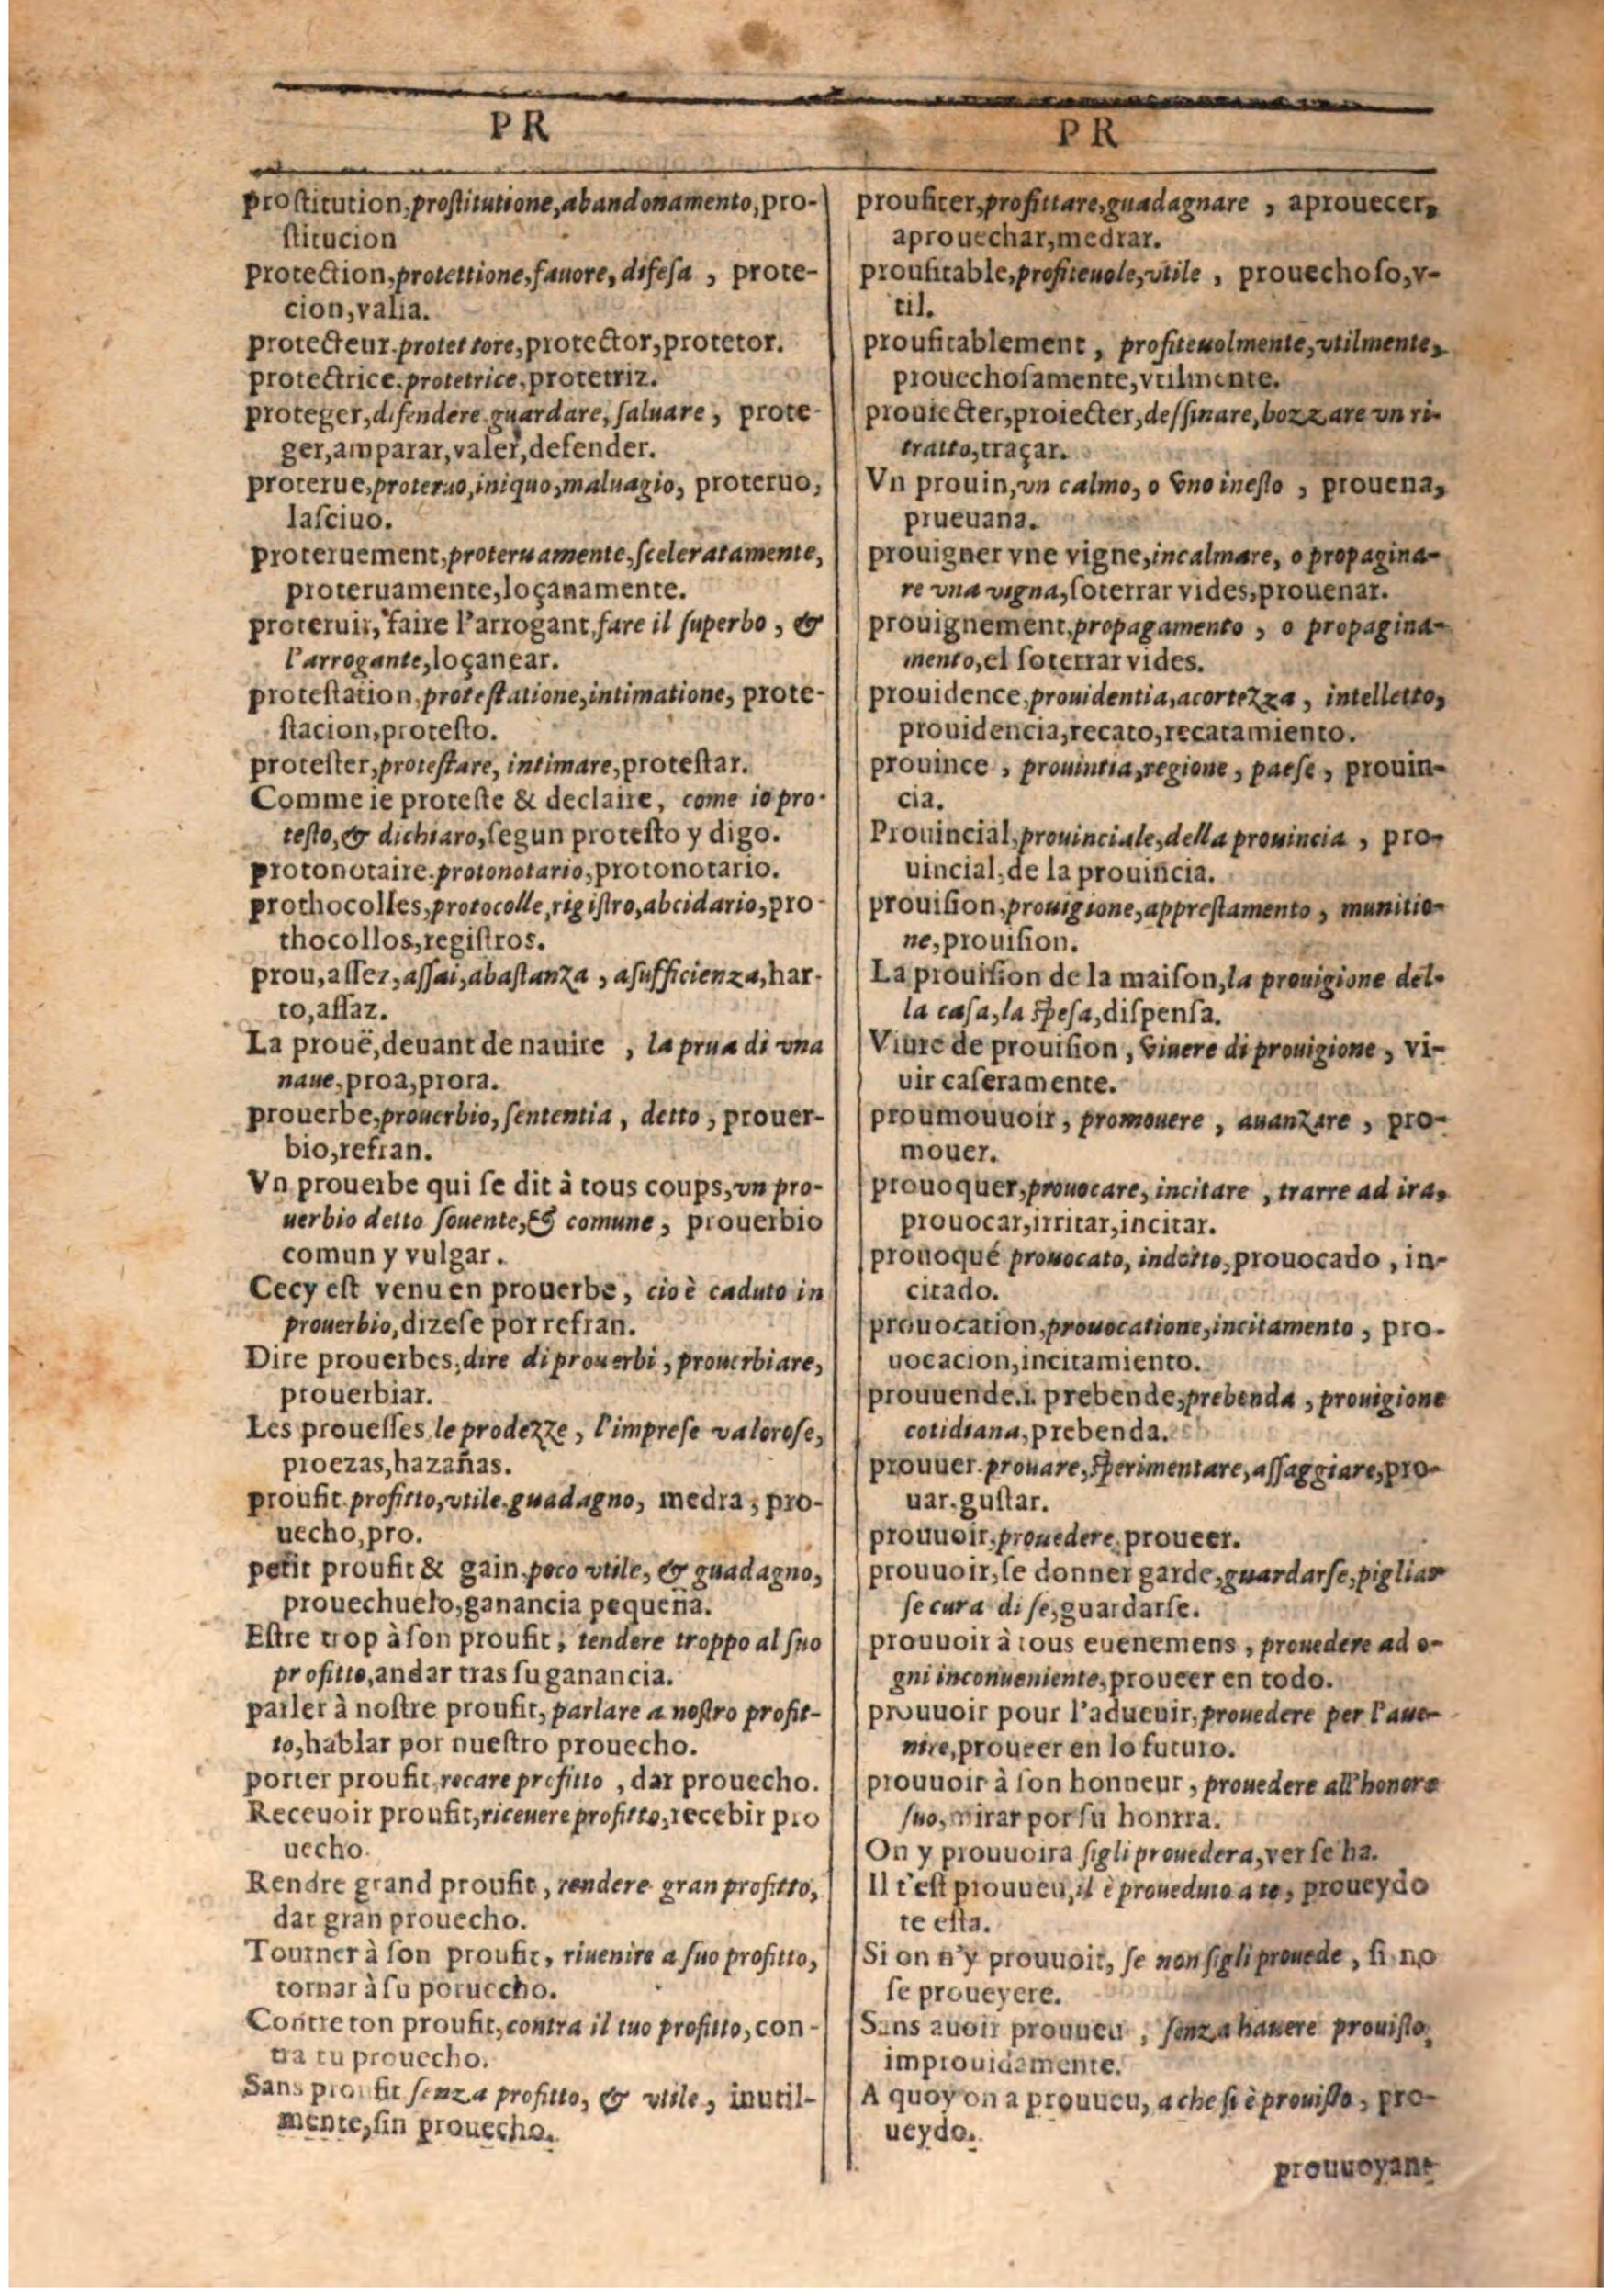 PR
proſtitution, proſtitutione, abandonamento, pro-
ſtitucion
protection, protettione, fauore, difeſa , prote-
cion, valia.
protecteur. protettore, protector, protetor.
protectrice. protetrice, protetriz.
proteger, difendere guardare, ſaluare, prote-
ger, amparar, valer, defender.
proterue, proteruo, iniquo, maluagio, proteruo,
laſciuo.
proteruement, proteruamente, ſceleratamente,
proteruamente, loçanamente.
proteruir, faire l'arrogant, fare il ſuperbo , &
l'arrogante, loçanear.
proteſtation, proteſtatione, intimatione, prote-
ſtacion, proteſto.
proteſter, proteſtare, intimare, proteſtar.
Comme ie proteſte & declaire, come io pro-
teſto, & dichiaro, ſegun proteſto y digo.
protonotaire. protonotario, protonotario.
prothocolles, protocolle, rigiſtro, abcidario, pro-
thocollos, regiſtros.
prou, aſſez, aſſai, abaſtanza , aſufficienza, har-
to, aſſaz.
La prouë, deuant de nauire , la prua di vna
naue, proa, prora.
prouerbe, prouerbio, ſententia , detto, prouer-
bio, refran.
Vn prouerbe qui ſe dit à tous coups, vn pro-
uerbio detto ſouente, & comune, prouerbio
comun y vulgar.
Cecy eſt venu en prouerbe, cio è caduto in
prouerbio, dizeſe por refran.
Dire prouerbes, dire di prouerbi, prouerbiare,
prouerbiar.
Les proueſſes le prodezze, l'impreſe valoroſe,
proezas, hazañas.
proufit. profitto, vtile. guadagno, medra, pro-
uecho, pro.
petit proufit & gain, poco vtile, & guadagno,
prouechuelo, ganancia pequeña.
Eſtre trop à ſon proufit, tendere troppo al ſuo
profitto, andar tras ſu ganancia.
parler à noſtre proufit, parlare a noſtro profit-
to, hablar por nueſtro prouecho.
porter proufit, recare profitto , dar prouecho.
Receuoir proufit, riceuere profitto, recebir pro
uecho.
Rendre grand proufit, rendere gran profitto,
dar gran prouecho.
Tourner à ſon proufit, riuenire a ſuo profitto,
tornar à ſu poruecho.
Contre ton proufit, contra il tuo profitto, con-
tra tu prouecho.
Sans proufit ſenza profitto, & vtile, inutil-
mente, ſin prouecho.
PR
proufiter, profittare, guadagnare , aprouecer,
aprouechar, medrar.
proufitable, profiteuole, vtile , prouechoſo, v-
til.
proufitablement , profiteuolmente, vtilmente,
prouechoſamente, vtilmente.
prouiecter, proiecter, deſſinare, bozzare vn ri-
tratto, traçar.
Vn prouin, vn calmo, o vno ineſto , prouena,
prueuana.
prouigner vne vigne, incalmare, o propagina-
re vna vigna, ſoterrar vides, prouenar.
prouignement, propagamento , o propagina-
mento, el ſoterrar vides.
prouidence, prouidentia, acortezza , intelletto,
prouidencia, recato, recatamiento.
prouince , prouintia, regione , paeſe , prouin-
cia.
Prouincial, prouinciale, della prouincia , pro-
uincial, de la prouincia.
prouiſion, prouigione, appreſtamento , munitio-
ne, prouiſion.
La prouiſion de la maiſon, la prouigione del-
la caſa, la ſpeſa, diſpenſa.
Viure de prouiſion, viuere di prouigione, vi-
uir caſeramente.
proumouuoir, promouere , auanzare , pro-
mouer.
prouoquer, prouocare, incitare , trarre ad ira,
prouocar, irritar, incitar.
prouoqué prouocato, indotto, prouocado , in-
citado.
prouocation, prouocatione, incitamento , pro-
uocacion, incitamiento.
prouuende. i. prebende, prebenda , prouigione
cotidiana, prebenda.
prouuer. prouare, ſperimentare, aſſaggiare, pro-
uar, guſtar.
prouuoir, prouedere, proueer.
prouuoir, ſe donner garde, guardarſe, pigliar
ſe cura di ſe, guardarſe.
prouuoir à tous euenemens , prouedere ad o-
gni inconueniente, proueer en todo.
prouuoir pour l'aduenir, prouedere per l'aue-
nire, proueer en lo futuro.
prouuoir à ſon honneur , prouedere all'honore
ſuo, mirar por ſu honrra.
On y prouuoira ſigli prouedera, ver ſe ha.
Il t'eſt prouueu, il è proueduto a te, proueydo
te eſta.
Si on n'y prouuoit, ſe non ſigli prouede , ſi no
ſe proueyere.
Sans auoir prouueu , ſenza hauere prouiſto,
improuidamente.
A quoy on a prouueu, a che ſi è prouiſto, pro-
ueydo.
prouuoyant